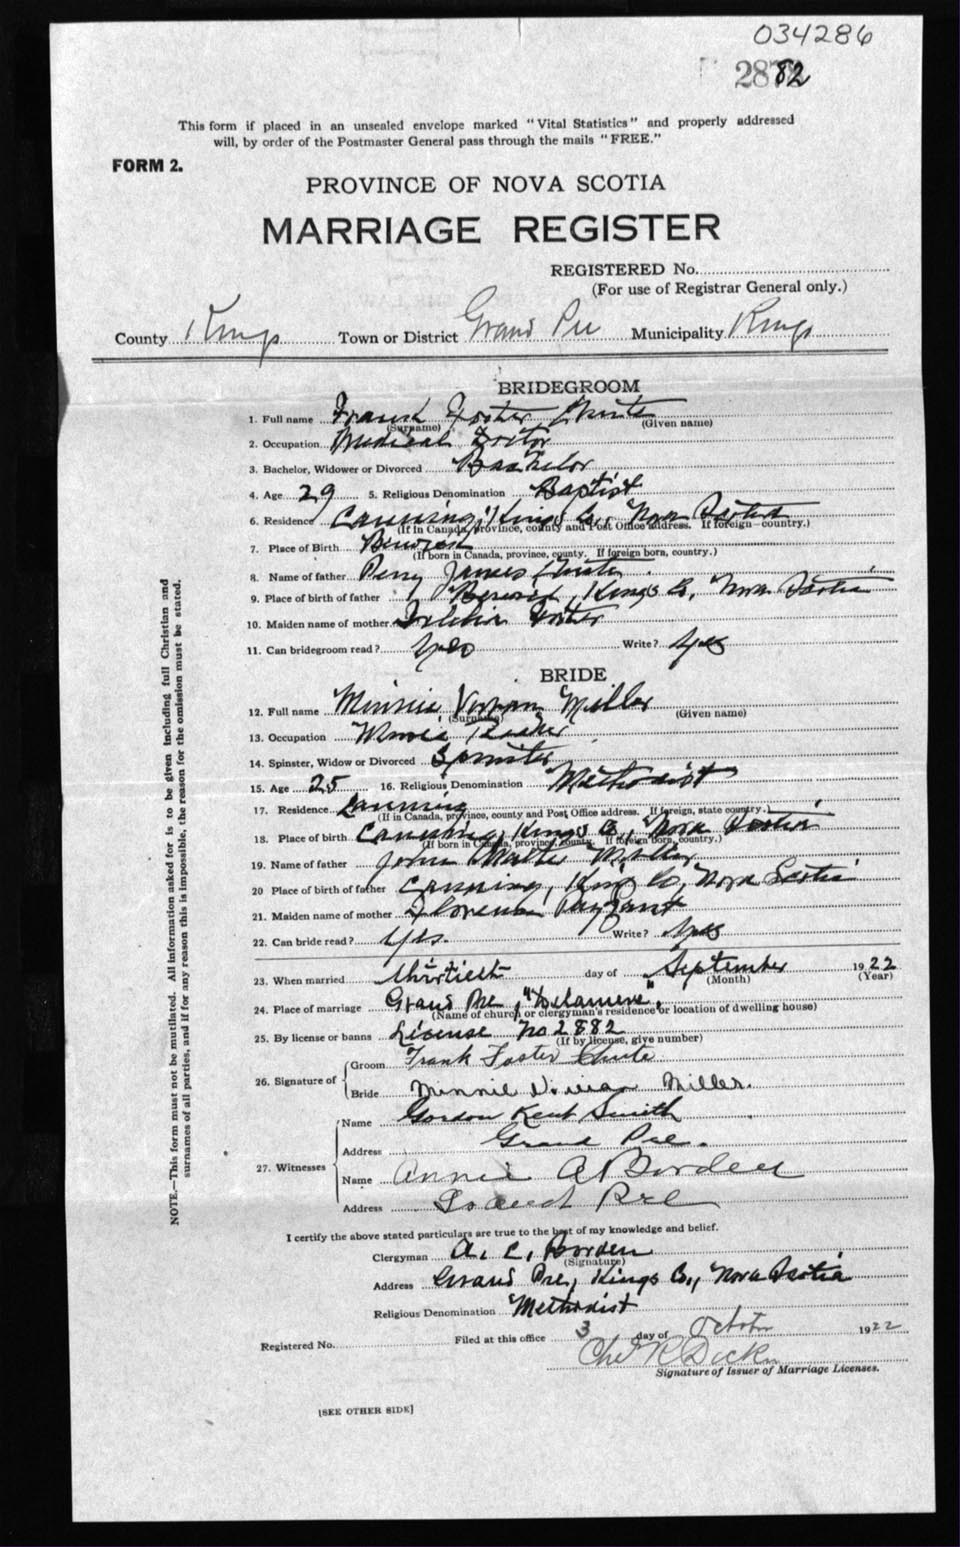 034286
2882
This form if placed in an unsealed envelope marked "Vital Statistics" and properly addressed
will, by order of the Postmaster General pass through the mails "FREE."
FORM 2.
PROVINCE OF NOVA SCOTIA
MARRIAGE REGISTER
REGISTERED No.
(For use of Registrar General only.)
County Kings Town or District Grand Pre Municipality Kings
BRIDEGROOM
1. Full name Frank Foster Chute
(Surname) (Given name)
2. Occupation Medical Doctor
3. Bachelor, Widower or Divorced Bachelor
4. Age 29 5. Religious Denomination Baptist
6. Residence Canning, Kings Co., Nova Scotia
(If in Canada, province, county and Post Office address. If foreign—country.)
7. Place of Birth Berwick
(If born in Canada, province, county. If foreign born, country.)
8. Name of father Perry James Chute
9. Place of birth of father Berwick, Kings Co., Nova Scotia
10. Maiden name of mother Foster
11. Can bridegroom read? Yes Write? Yes
BRIDE
12. Full name Minnie Vivian Miller
(Surname) (Given name)
13. Occupation
14. Spinster, Widow or Divorced Spinster
15. Age 25 16. Religious Denomination Methodist
17. Residence Canning
(If in Canada, province, county and Post Office address. If foreign, state country.)
18. Place of birth Canning, Kings Co., Nova Scotia
(If born in Canada, province, county. If foreign born, country.)
19. Name of father John Miller
20 Place of birth of father Canning, Kings Co, Nova Scotia
21. Maiden name of mother Florence Payzant
22. Can bride read? Yes. Write? Yes
23. When married Thirtieth day of September 1922
(Month) (Year)
24. Place of marriage Grand Pre,
(Name of church or clergyman's residence or location of dwelling house)
25. By license or banns License No 2882
(If by license, give number)
26. Signature of
Groom Frank Foster Chute
Bride Minnie Vivian Miller.
27. Witnesses
Name Gordon Kent Smith
Address Grand Pre.
Name Annie A Borden
Address Grand Pre
I certify the above stated particulars are true to the best of my knowledge and belief.
Clergyman A. C. Borden
(Signature)
Address Grand Pre, Kings Co., Nova Scotia
Religious Denomination Methodist
Registered No. Filed at this office 3 day of October 1922
Chas R Dickie
Signature of Issuer of Marriage Licenses.
[SEE OTHER SIDE]
NOTE.—This form must not be mutilated. All information asked for is to be given including full Christian and
surnames of all parties, and if for any reason this is impossible, the reason for the omission must be stated.